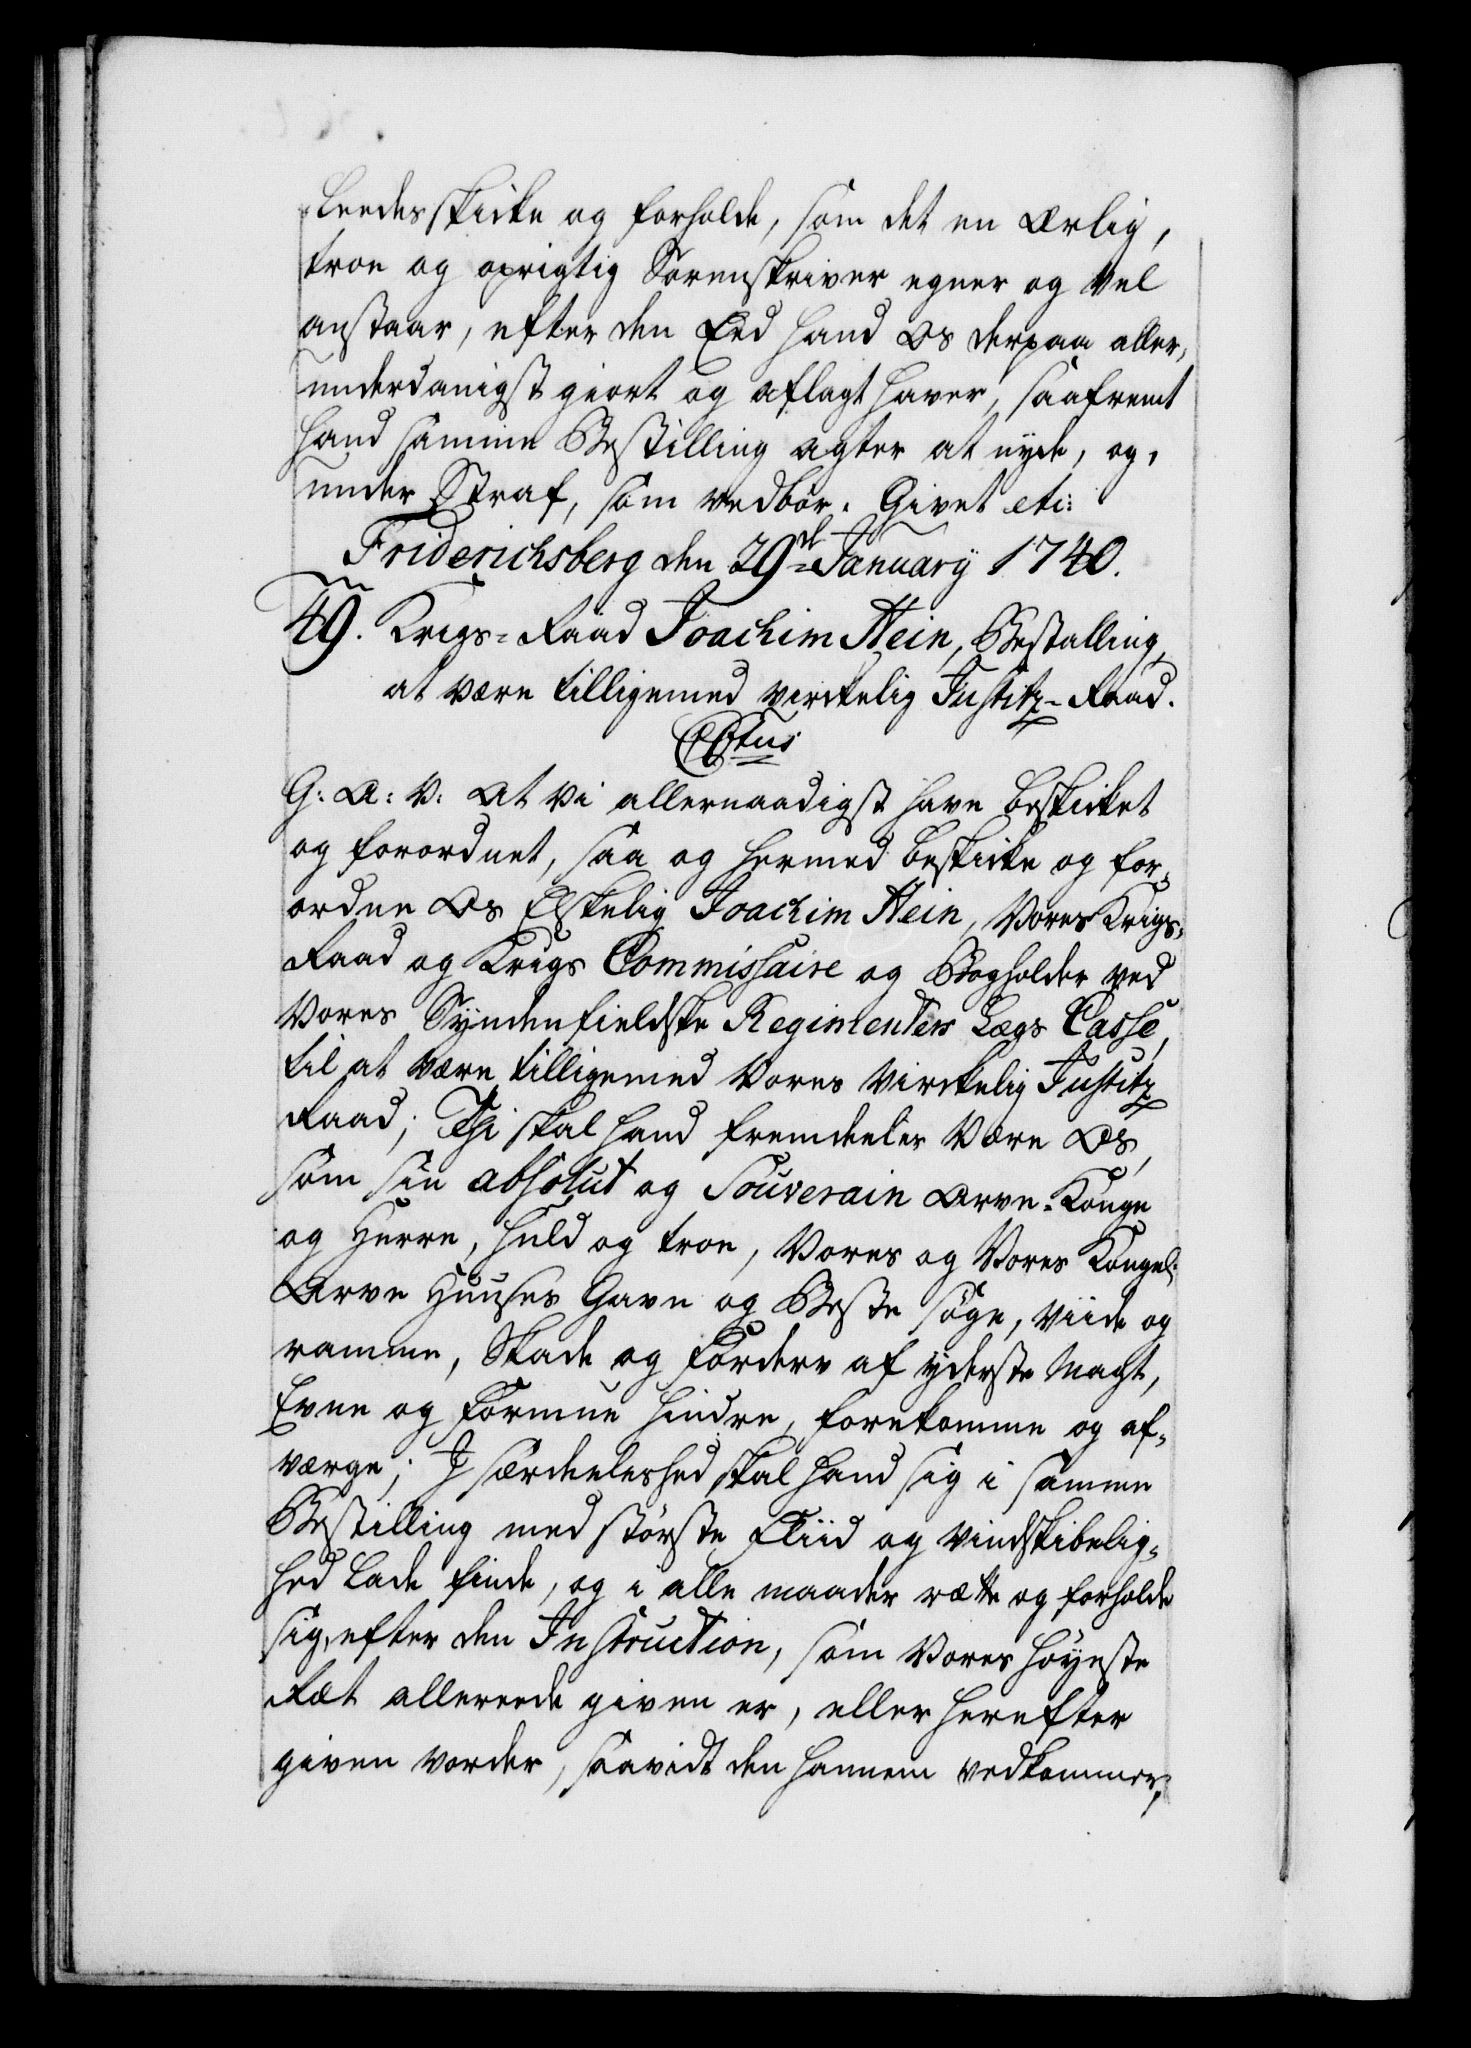 leedes skikke og forholde, som det en ærlig,
troe og oprigtig Sorenskriver egner og vel
anstaar, efter den Eed hand Os derpaa aller-
underdanigst giort og aflagt haver, saafremt
hand samme Bestilling agter at nyde, og
under Straf, som vedbør. Givet etc:
Friderichsberg den 29de January 1740.
49. Krigs-Raad Joachim Hein, Bestalling,
at være tilligemed virckelig Justitz-Raad.
CStus
G: A: V: At Vi allernaadigst have beskikket
og forordnet, saa og hermed beskikke og for-
ordne Os Elskelig Joachim Hein, Vores Krigs-
Raad og Krigs Commissaire og Bogholder ved
Vores Syndenfieldske Regimenters Lægs Casse,
til at være tilligemed Vores Virckelig Justitz
Raad; Thi skal hand fremdeeles være Os,
som sin absolut og Souverain Arve-Konge
og Herre, huld og troe, Vores og Vores Kongel:
Arve Huuses Gavn og Beste søge, viide og
ramme, Skade og Forderv af yderste Magt,
Evne og Formue hindre, forekomme og af-
værge; I særdeeleshed skal hand sig i samme
Bestilling med største Fliid og Vindskibelig-
hed lade finde, og i alle maader rætte og forholde
sig efter den Instruction, som Vores Høyeste
Ræt allereede given er, eller herefter
given vorder, saavidt den hannem vedkommer,